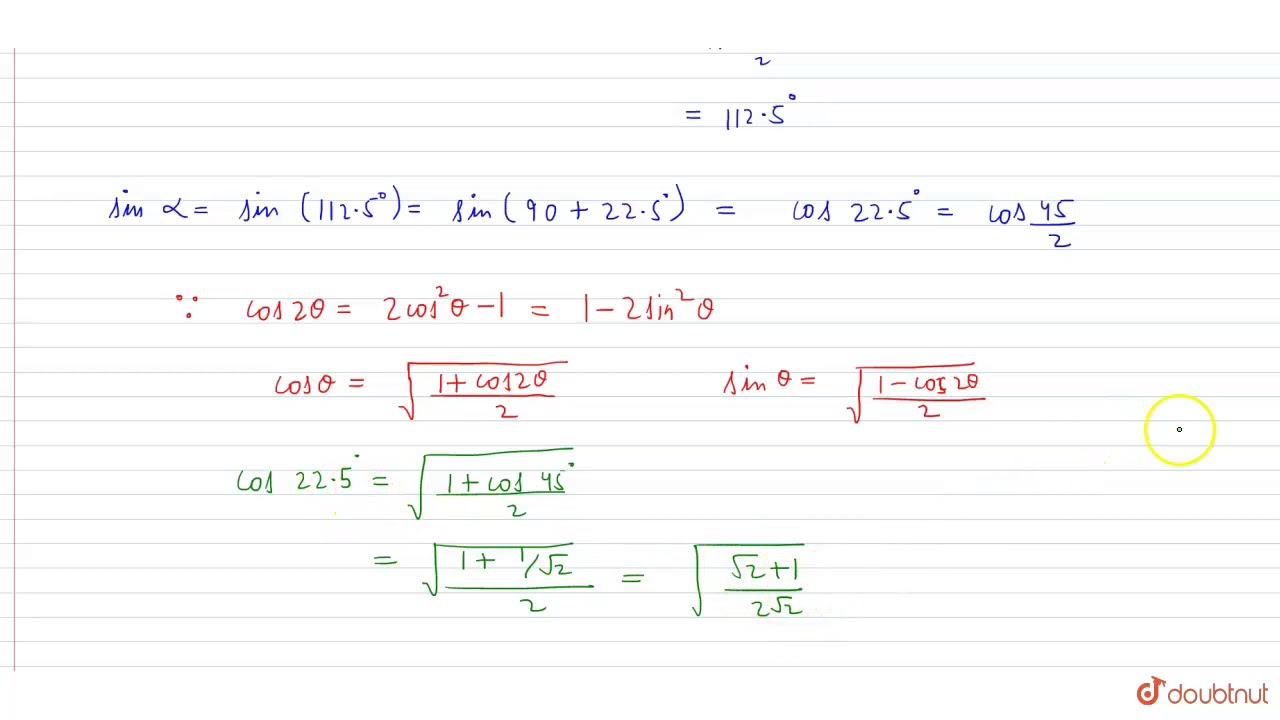 2
= 112.5°
sin α = sin (112.5°) = sin (90 + 22.5°) = cos 22.5° = cos 45/2
∵ cos2θ = 2cos²θ - 1 = 1 - 2sin²θ
cosθ = √((1 + cos2θ)/2) sin θ = √((1 - cos2θ)/2)
cos 22.5° = √((1 + cos 45°)/2)
= √((1 + 1/√2)/2) = √((√2 + 1)/(2√2))
doubtnut